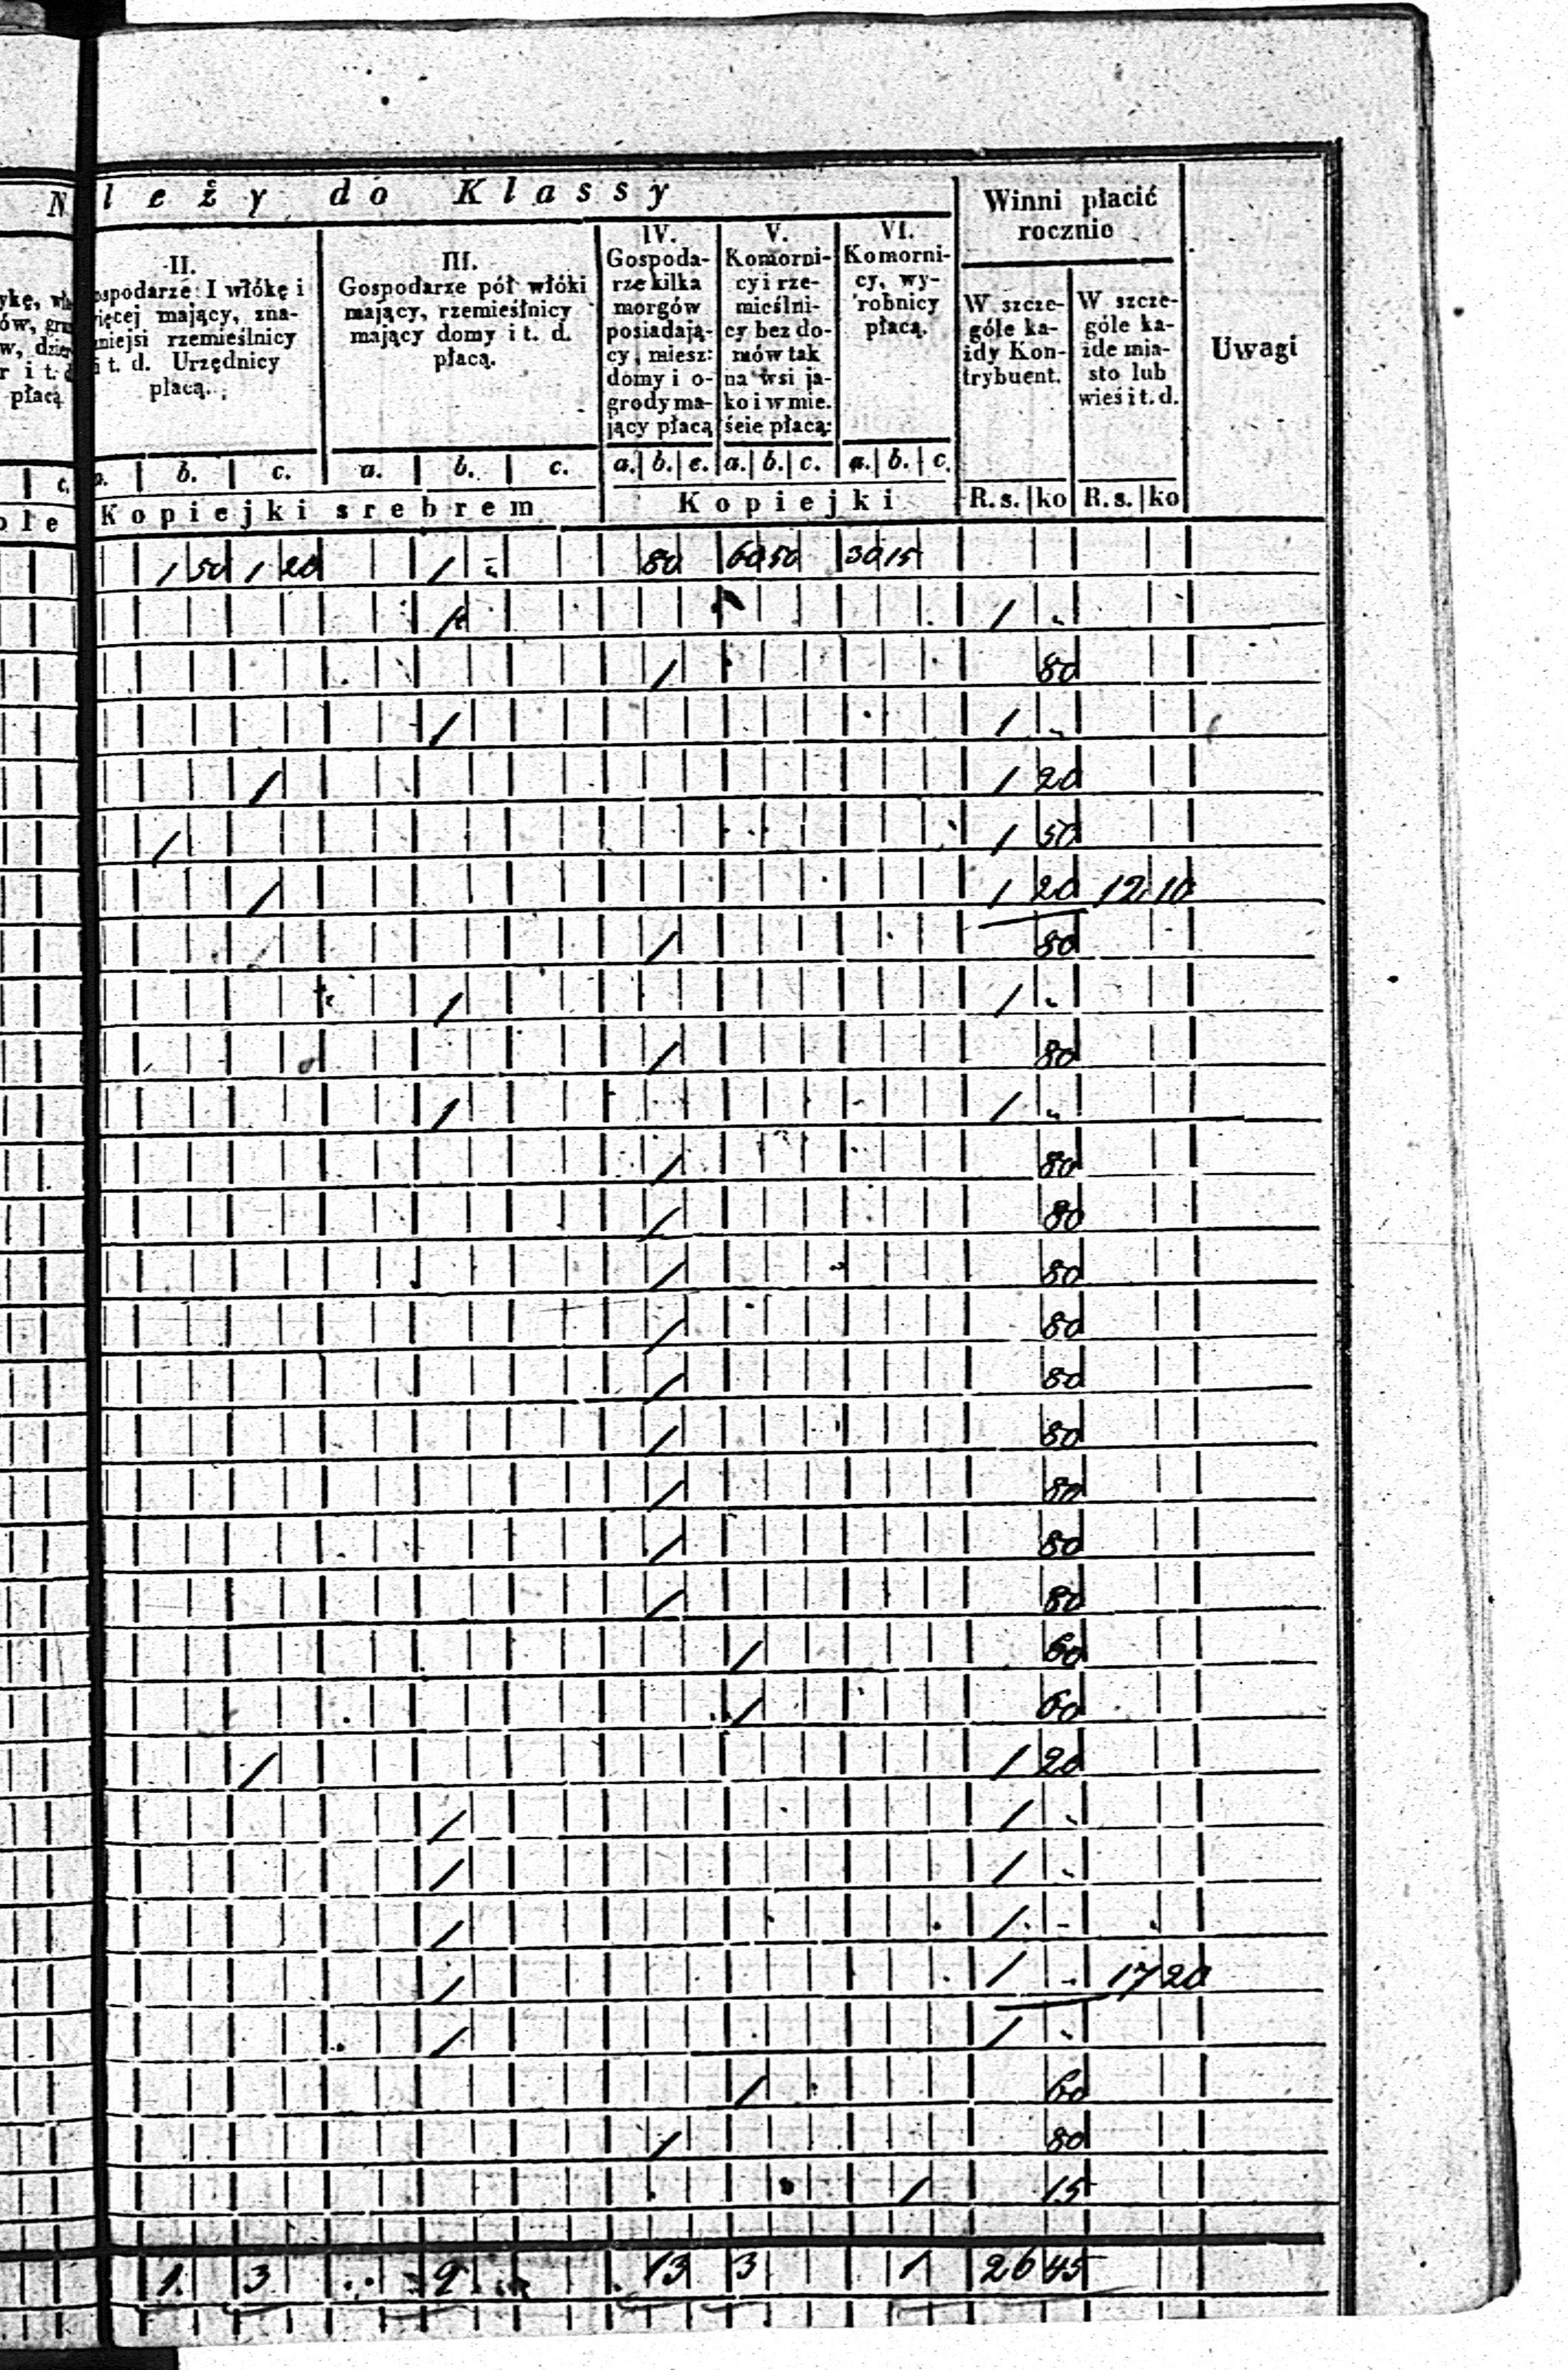 N l e ż y d o K l a s s y
Winni płacić rocznie
Uwagi
II.
ospodarze I włókę i
ięcej mający, zna-
zniejsi rzemieślnicy
i t. d. Urzędnicy
płacą.
III.
Gospodarze pół włóki
mający, rzemieślnicy
mający domy i t. d.
płacą.
IV.
Gospoda-
rze kilka
morgów
posiadają-
cy, miesz:
domy i o-
grody ma-
jący płacą
V.
Komorni-
cy i rze-
mieślni-
cy bez do-
mów tak
na wsi ja-
ko i w mie.
ście płacą:
VI.
Komorni-
cy, wy-
robnicy
płacą.
W szcze-
góle ka-
żdy Kon-
trybuent.
W szcze-
góle ka-
żde mia-
sto lub
wieś i t. d.
płacą
c. b. c. a. b. c. a. b. c. a. b. c. a. b. c.
Kopiejki srebrem Kopiejki R.s. ko R.s. ko
1 50 1 20 1 - 80 60 50 30 15
/ 1 -
/ 80
/ 1 -
/ 1 20
/ 1 50
/ 1 20 12 10
/ 80
/ 1 -
/ 80
/ 1 -
/ 80
/ 80
/ 80
/ 80
/ 80
/ 80
/ 80
/ 80
/ 80
/ 60
/ 60
/ 1 20
/ 1 -
/ 1 -
/ 1 -
/ 1 - 17 20
/ 1 -
/ 60
/ 80
/ 15
1 3 9 13 3 1 26 45